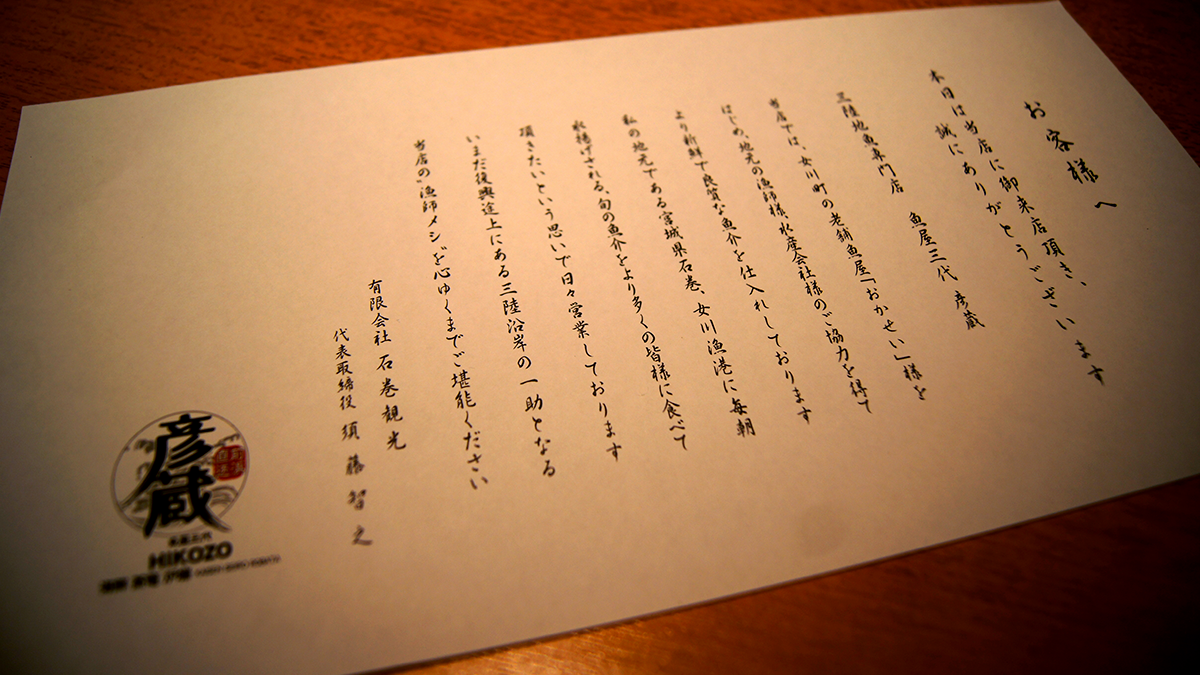 お客様へ
本日は当店に御来店頂き、
誠にありがとうございます
三陸地魚専門店 魚屋三代 彦蔵
当店では、女川町の老舗魚屋「おかせい」様を
はじめ、地元の漁師様、水産会社様のご協力を得て
より新鮮で良質な魚介を仕入れしております
私の地元である宮城県石巻、女川漁港に毎朝
水揚げされる、旬の魚介をより多くの皆様に食べて
頂きたいという思いで日々営業しております
いまだ復興途上にある三陸沿岸の一助となる
当店の〝漁師メシ〟を心ゆくまでご堪能ください
有限会社 石巻観光
代表取締役 須藤智之
彦蔵
魚屋三代
HIKOZO